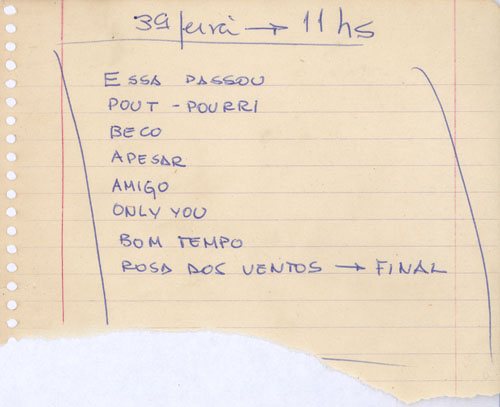 3ª feira → 11 hs
ESSA PASSOU
POUT-POURRI
BECO
APESAR
AMIGO
ONLY YOU
BOM TEMPO
ROSA DOS VENTOS → FINAL